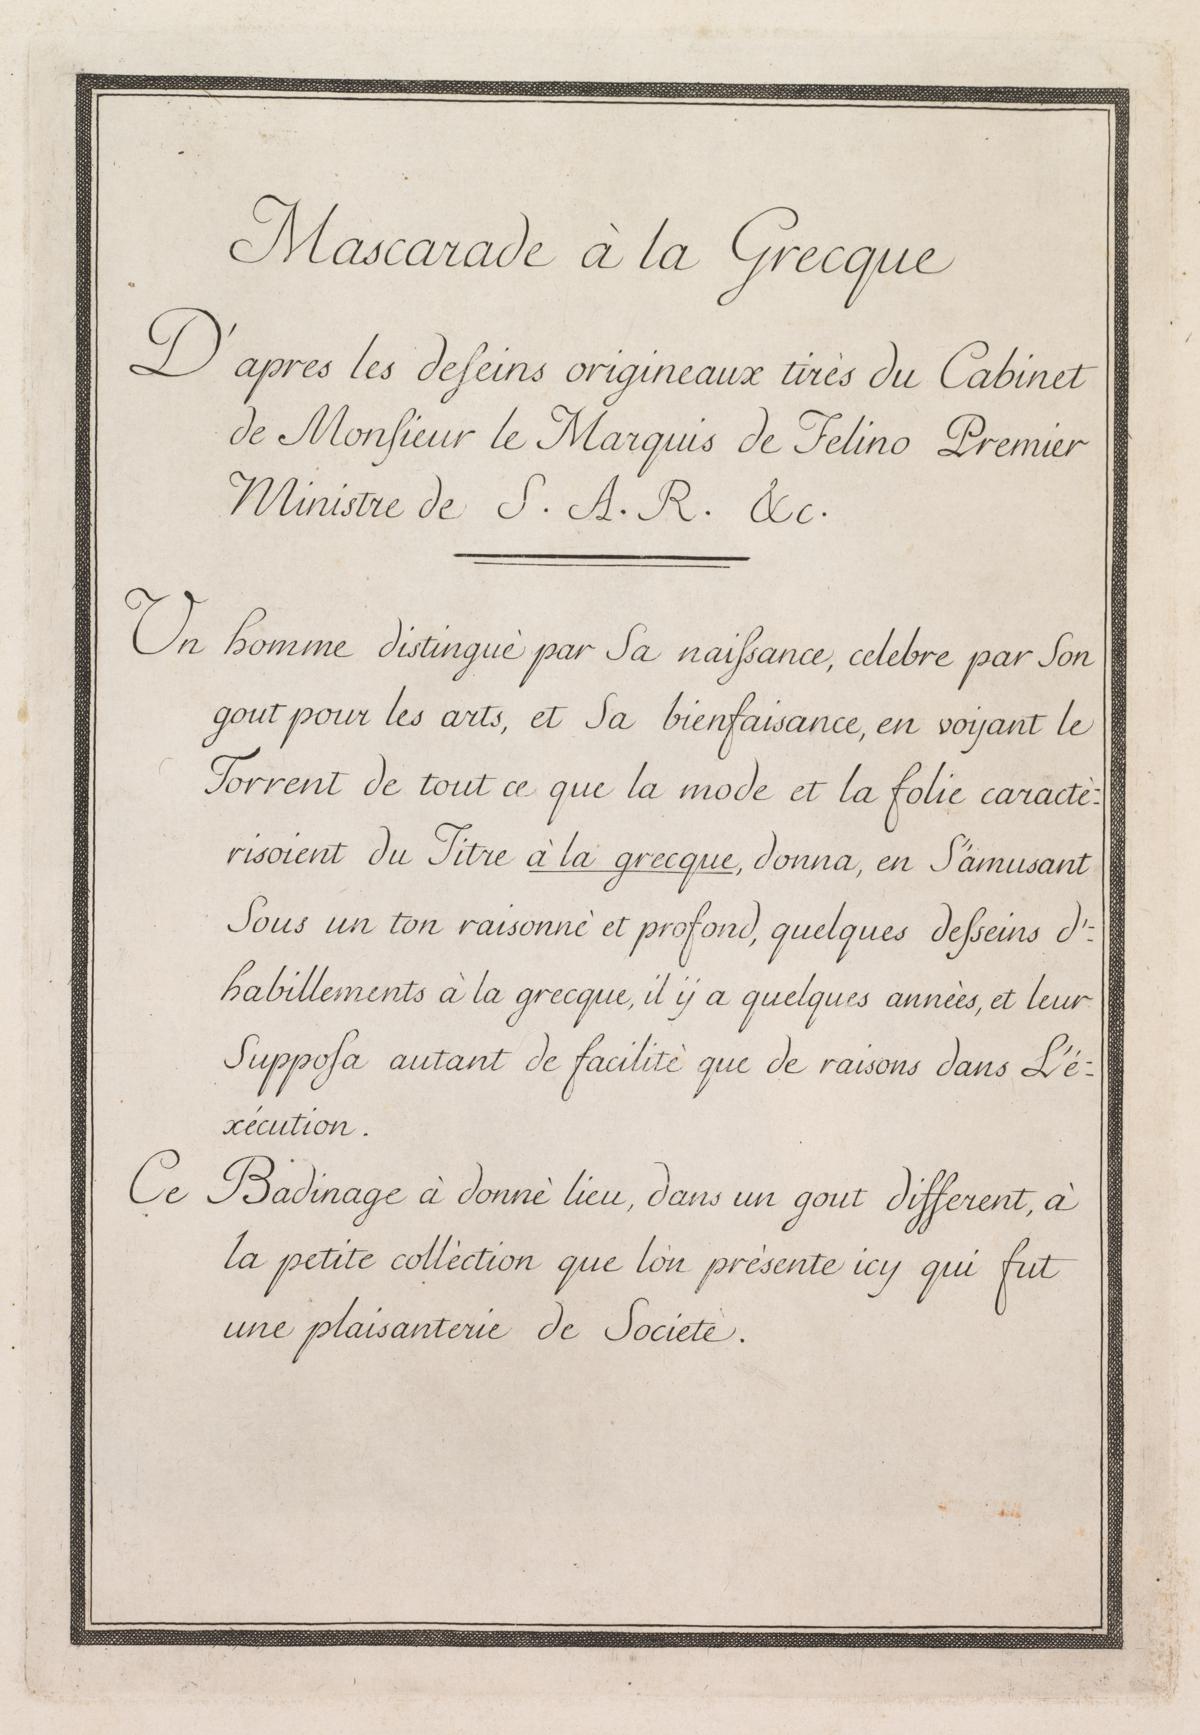 Mascarade à la Grecque
D'apres les deſeins origineaux tirès du Cabinet
de Monſieur le Marquis de Felino Premier
Ministre de S. A. R. &c.
Un homme distinguè par Sa naiſsance, celebre par Son
gout pour les arts, et Sa bienfaisance, en voyant le
Torrent de tout ce que la mode et la folie caractè=
risoient du Titre à la grecque, donna, en S'amusant
Sous un ton raisonnè et profond, quelques deſseins d'=
habillements à la grecque, il ij a quelques annèes, et leur
Suppoſa autant de facilitè que de raisons dans L'é=
xécution.
Ce Badinage à donnè lieu, dans un gout different, à
la petite collèction que l'on présente icy qui fut
une plaisanterie de Societè.